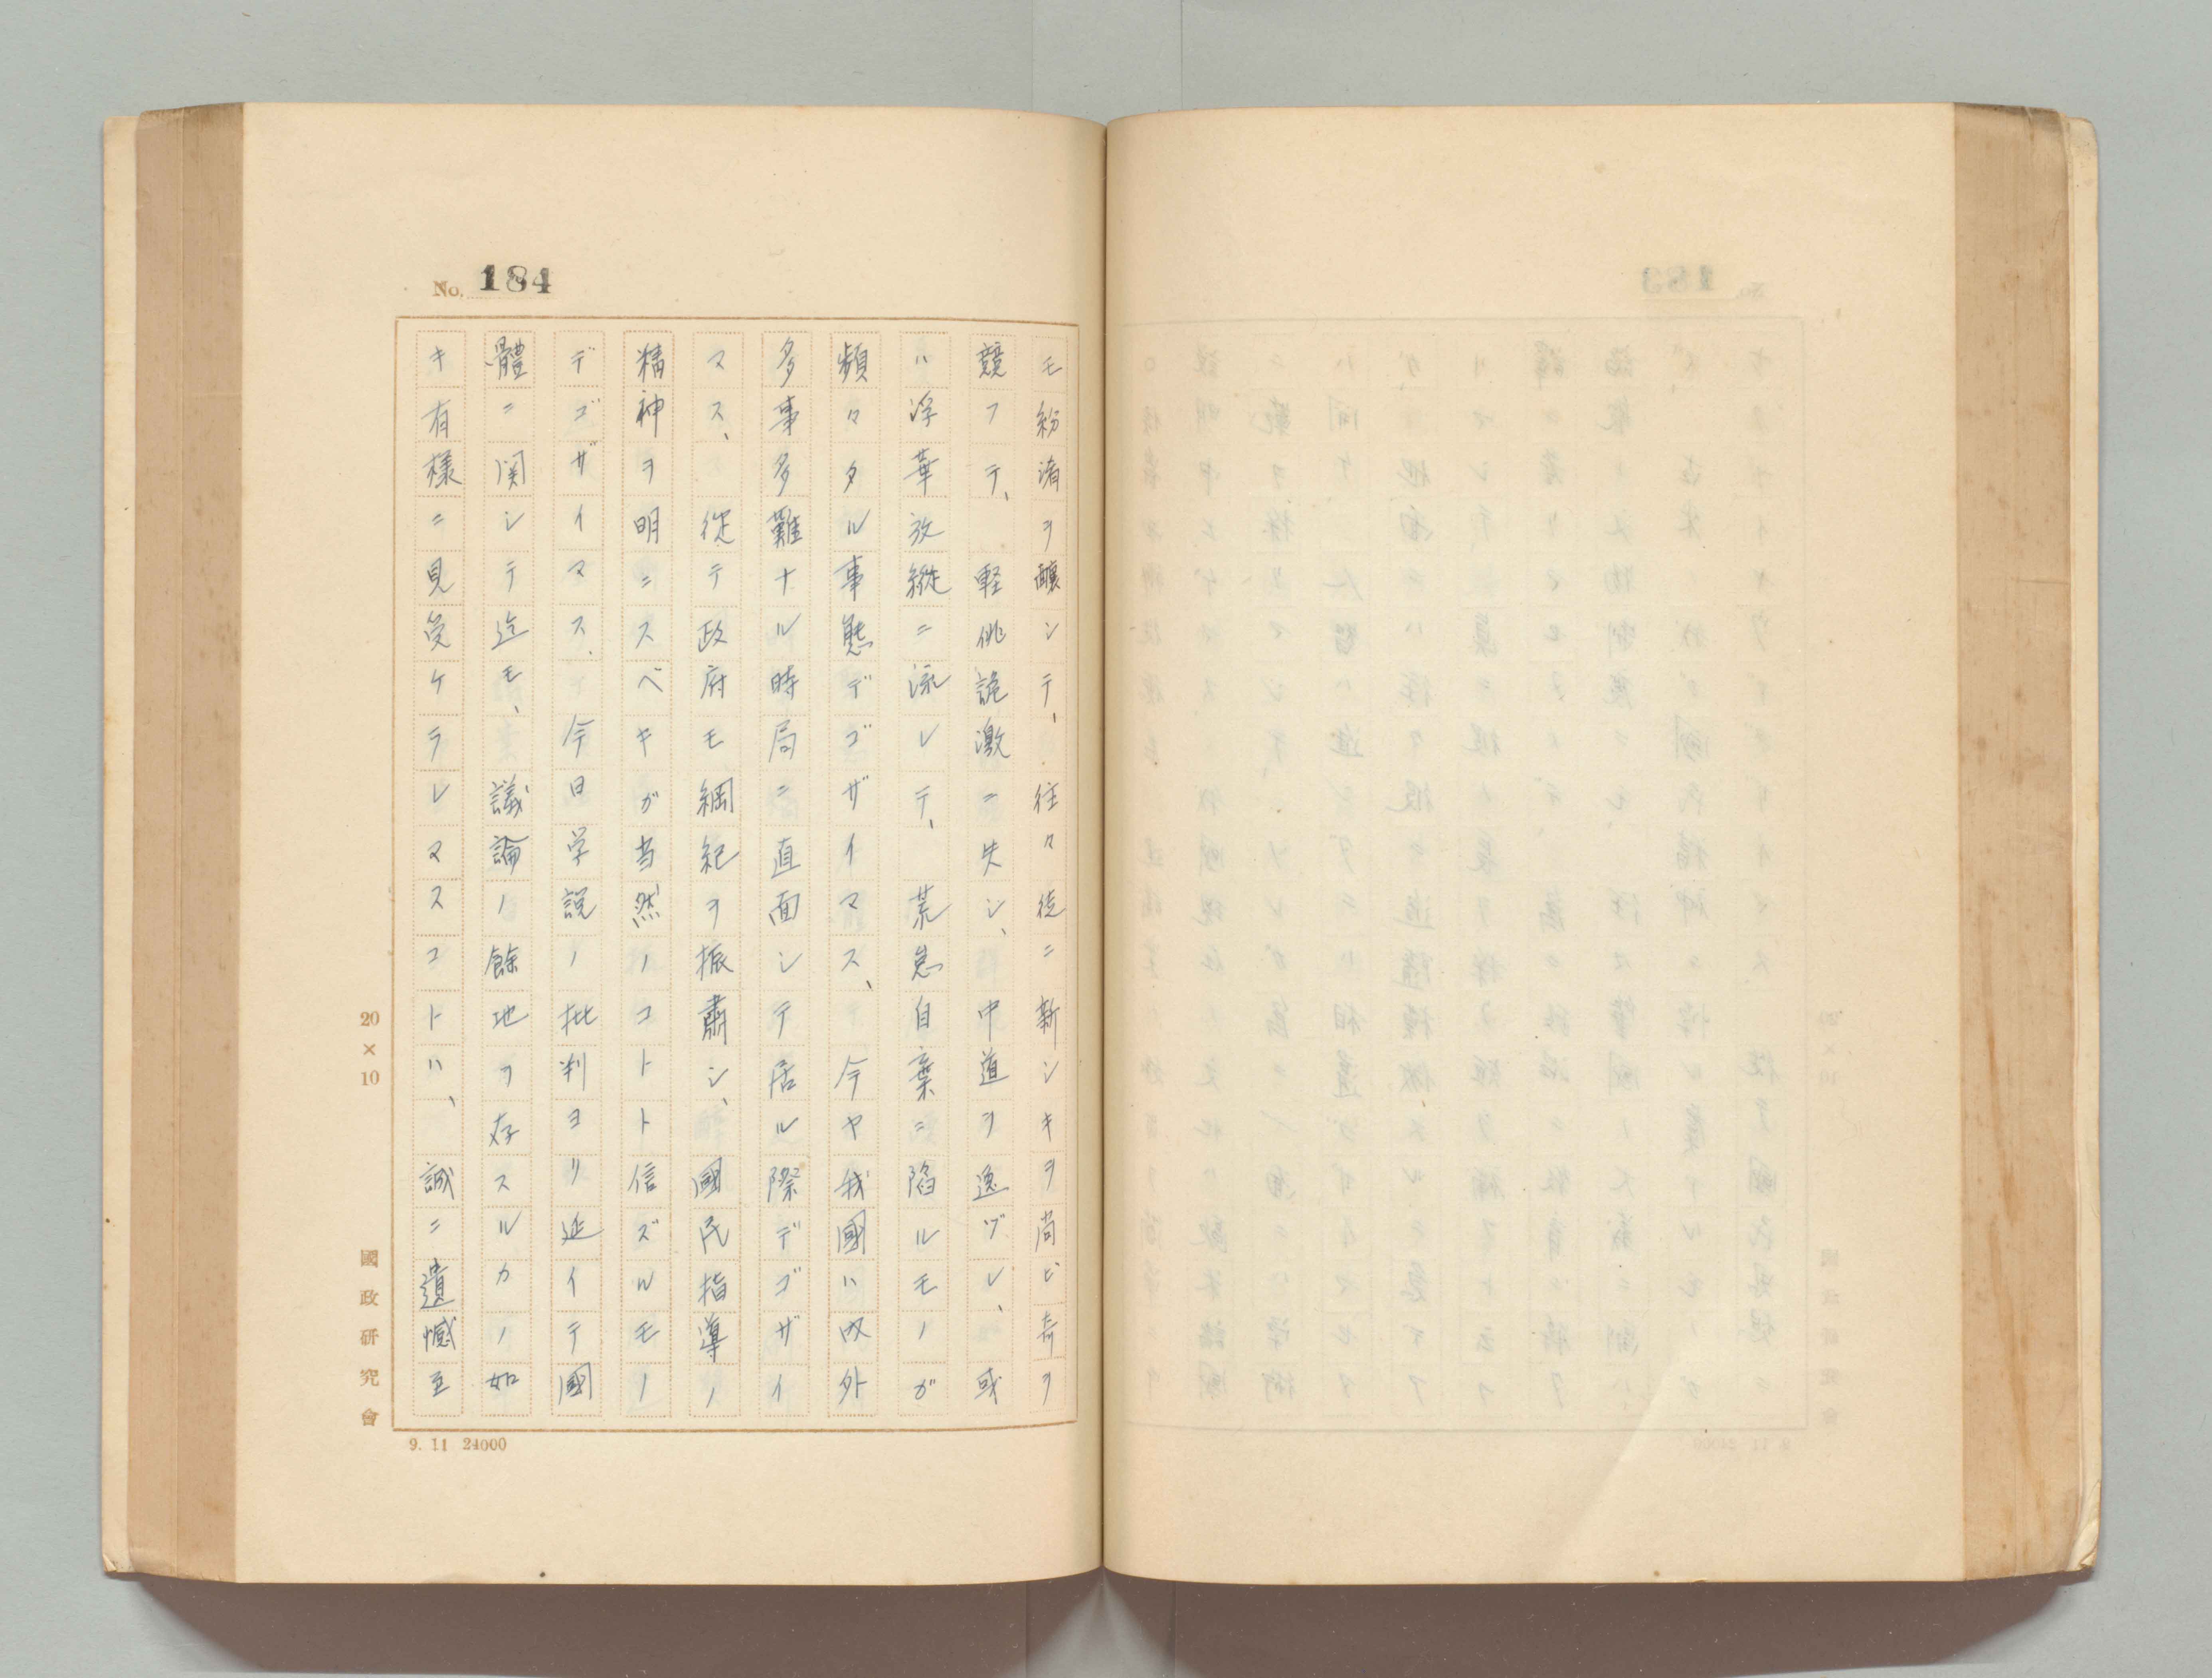 No. 184
モ紛淆ヲ醸シテ、往々徒ニ新シキヲ尚ビ奇ヲ
競フテ、軽佻詭激ニ失シ、中道ヲ逸ヅレ、或
ハ浮華放縦ニ流レテ、荒怠自棄ニ陥ルモノガ
頻々タル事態デゴザイマス、今ヤ我國ハ内外
多事多難ナル時局ニ直面シテ居ル際デゴザイ
マス、従テ政府モ綱紀ヲ振肅シ、國民指導ノ
精神ヲ明ニスベキガ当然ノコトト信ズルモノ
デゴザイマス、今日学説ノ批判ヨリ延イテ國
體ニ関シテ迄モ、議論ノ餘地ヲ存スルカノ如
キ有様ニ見受ケラレマスコトハ、誠ニ遺憾至
20×10
國政研究會
9. 11 24000